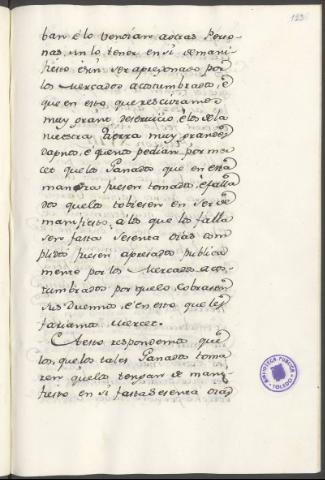 123
ban é lo vendian á otras Perso-
nas, sin lo tener en sí de mani-
fiesto é sin ser apregonado por
los Mercados acostumbrados, é
que en esto, que rescivamos
muy grant deservicio, é los de la
nuestra Tierra muy grandes
dapnos, é que nos pedian por mer-
cet que los Ganados que en esta
manera fuesen tomados, é falla-
dos que los tobiesen en sí de
manifiesto, á los que los falla-
sen fasta sesenta dias com-
plidos fuesen apregonados publica-
mente por los Mercados acos-
tumbrados por que lo cobrasen
sus Duennos, é en esto que les
fariamos merced.
A esto respondemos que
los, que los tales Ganados toma-
ren que los tengan de mani-
fiesto en sí fasta sesenta dias
BIBLIOTECA PUBLICA
TOLEDO